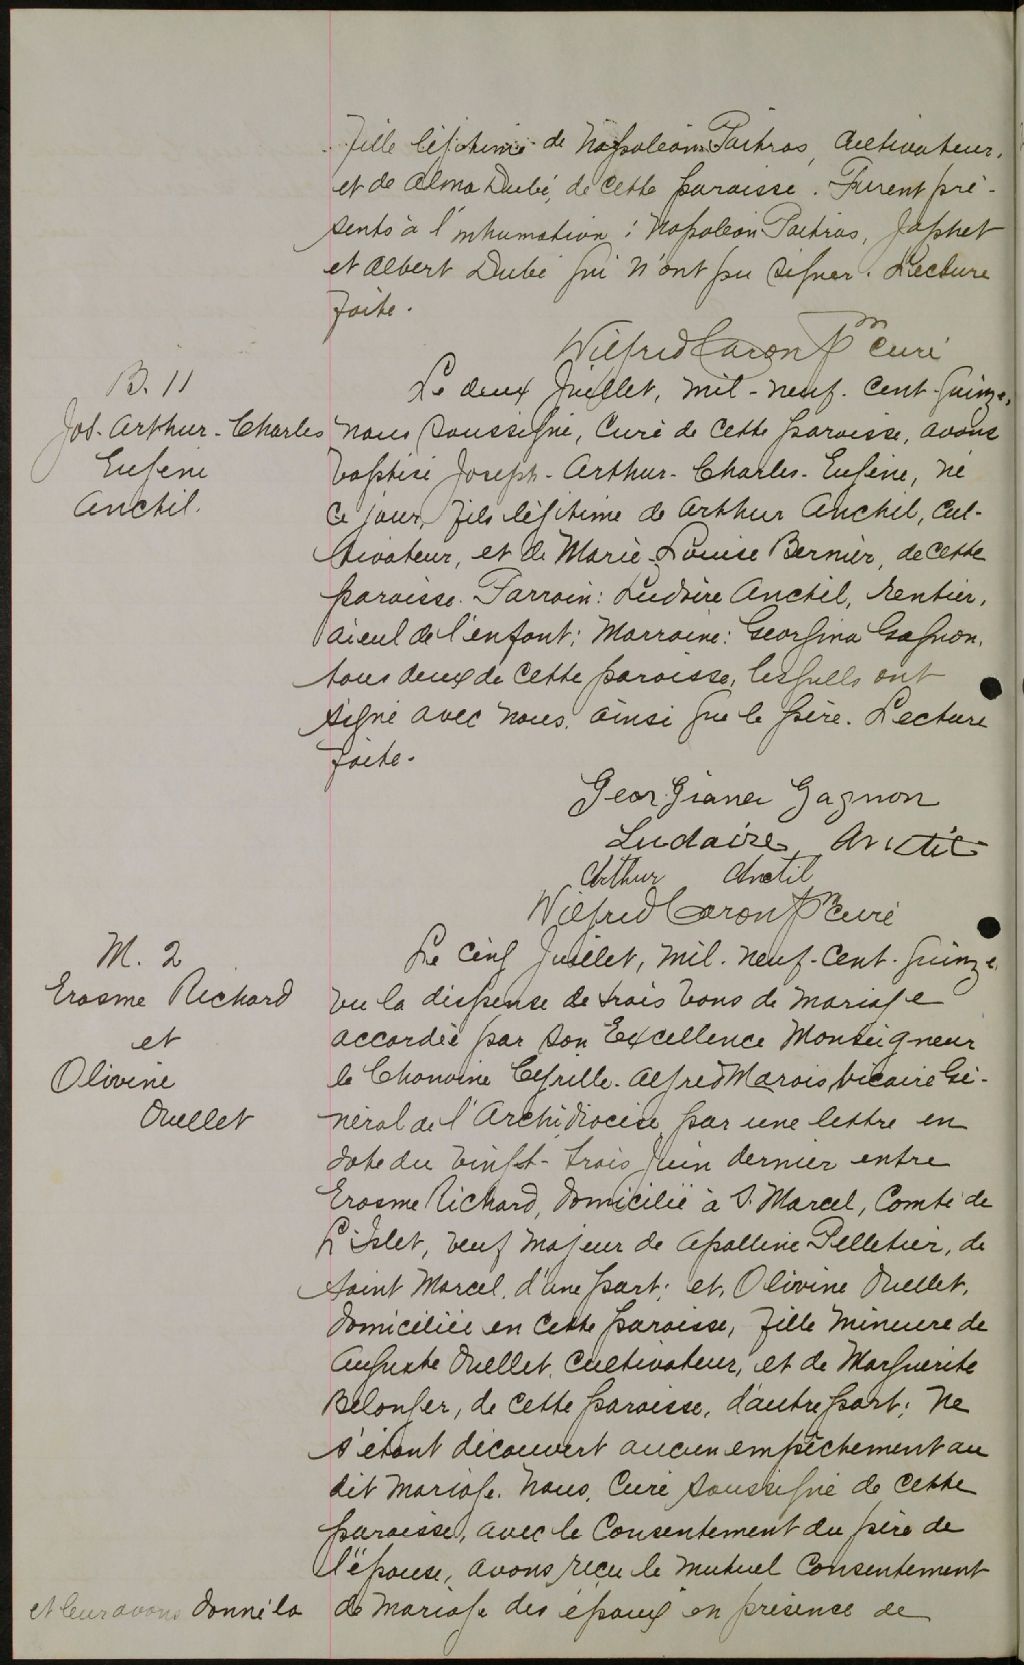 fille légitime de Napoléon Poitras, cultivateur,
et de Alma Dubé, de cette paroisse. Furent pré-
sents à l'inhumation : Napoléon Poitras, Japhet
et Albert Dubé qui n'ont pu signer. Lecture
faite.
Wilfrid Caron Ptre curé
B. 11
Jos. Arthur - Charles
Eugène
Anctil.
Le deux Juillet, mil - neuf - cent - quinze,
nous soussigné, Curé de cette paroisse, avons
baptisé Joseph - Arthur - Charles - Eugène, né
ce jour, fils légitime de Arthur Anctil, cul-
tivateur, et de Marie Louise Bernier, de cette
paroisse. Parrain : Ludoire Anctil, rentier,
aïeul de l'enfant; Marraine : Georgina Gagnon,
tous deux de cette paroisse, lesquels ont
signé avec nous, ainsi que le père. Lecture
faite.
Georgiana Gagnon
Ludaire Anctil
Arthur Anctil
Wilfrid Caron Ptre curé
M. 2
Erasme Richard
et
Olivine
Ouellet
Le cinq Juillet, mil - neuf - cent - quinze,
vu la dispense de trois bans de mariage
accordée par Son Excellence Monseigneur
le Chanoine Cyrille - Alfred Marois, Vicaire Gé-
néral de l'Archidiocèse par une lettre en
date du vingt - trois Juin dernier entre
Erasme Richard, domicilié à S. Marcel, Comté de
L'Islet, veuf majeur de Apolline Pelletier, de
Saint Marcel, d'une part; et, Olivine Ouellet,
domiciliée en cette paroisse, fille mineure de
Auguste Ouellet, cultivateur, et de Marguerite
Bélanger, de cette paroisse, d'autre part; ne
s'étant découvert aucun empêchement au
dit mariage. Nous, Curé soussigné de cette
paroisse, avec le Consentement du père de
l'épouse, avons reçu le mutuel Consentement
de mariage des époux en présence de
et leur avons donné la